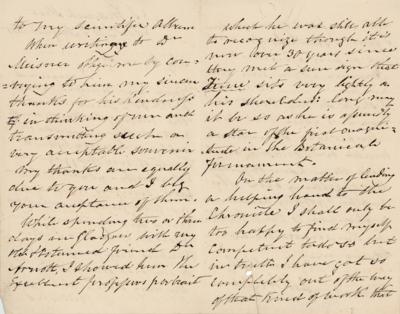 to my scientific Album
When writing to Dr
Meisner oblige me by con-
veying to him my sincere
thanks for his kindness
in thinking of me and
transmitting such a
very acceptable souvenir
My thanks are equally
due to you and I beg
your acceptance of them.
While spending two or three
days in Glasgow with my
old Botanical friend Dr
Arnott, I showed him the
Excellent professors portrait
which he was still able
to recognize though it is
now over 30 years since
they met a sure sign that
Time sits very lightly on
his shoulders: long may
it be so as he is assuredly
a star of the first magni-
tude in the Botanical
firmament.
On the matter of lending
a helping hand to the
Chronicle I shall only be
too happy to find myself
competent to do so but
in truth I have got so
completely out of the way
of that kind of work that